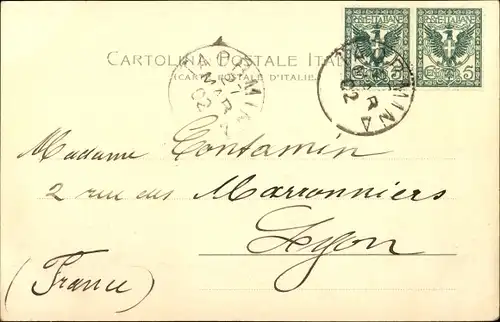 POSTE ITALIANE POSTE ITALIANE
5 5
CARTOLINA POSTALE ITALIANA
(CARTE POSTALE D'ITALIE)
TAORMINA
MAR
02
TAORMINA
MAR
02
Madame Contamin
2 rue des Marronniers
Lyon
(France)